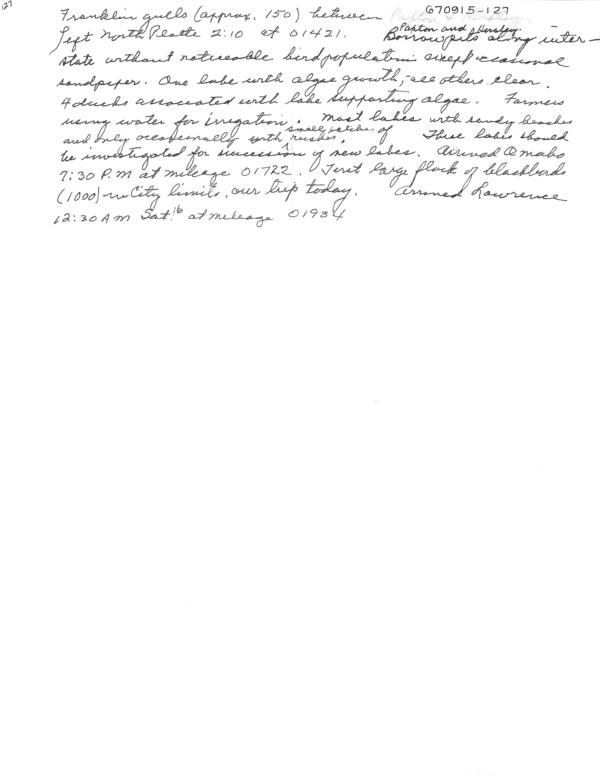 127
670915-127
Franklin gulls (approx. 150) between Paxton and Hershey.
Left North Platte 2:10 at 01421. Borrow pits along inter-
state without noticeable bird population except occasional
sandpiper. One lake with algae growth, - all others clear.
4 ducks associated with lake supporting algae. Farmers
using water for irrigation. Most lakes with sandy beaches
and only occasionally with small patches of rushes. These lakes should
be investigated for succession of new lakes. Arrived Omaha
7:30 P.M at mileage 01722. First large flock of blackbirds
(1000) in City limits, our trip today. Arrived Lawrence
12:30 AM Sat. 16 at mileage 01934